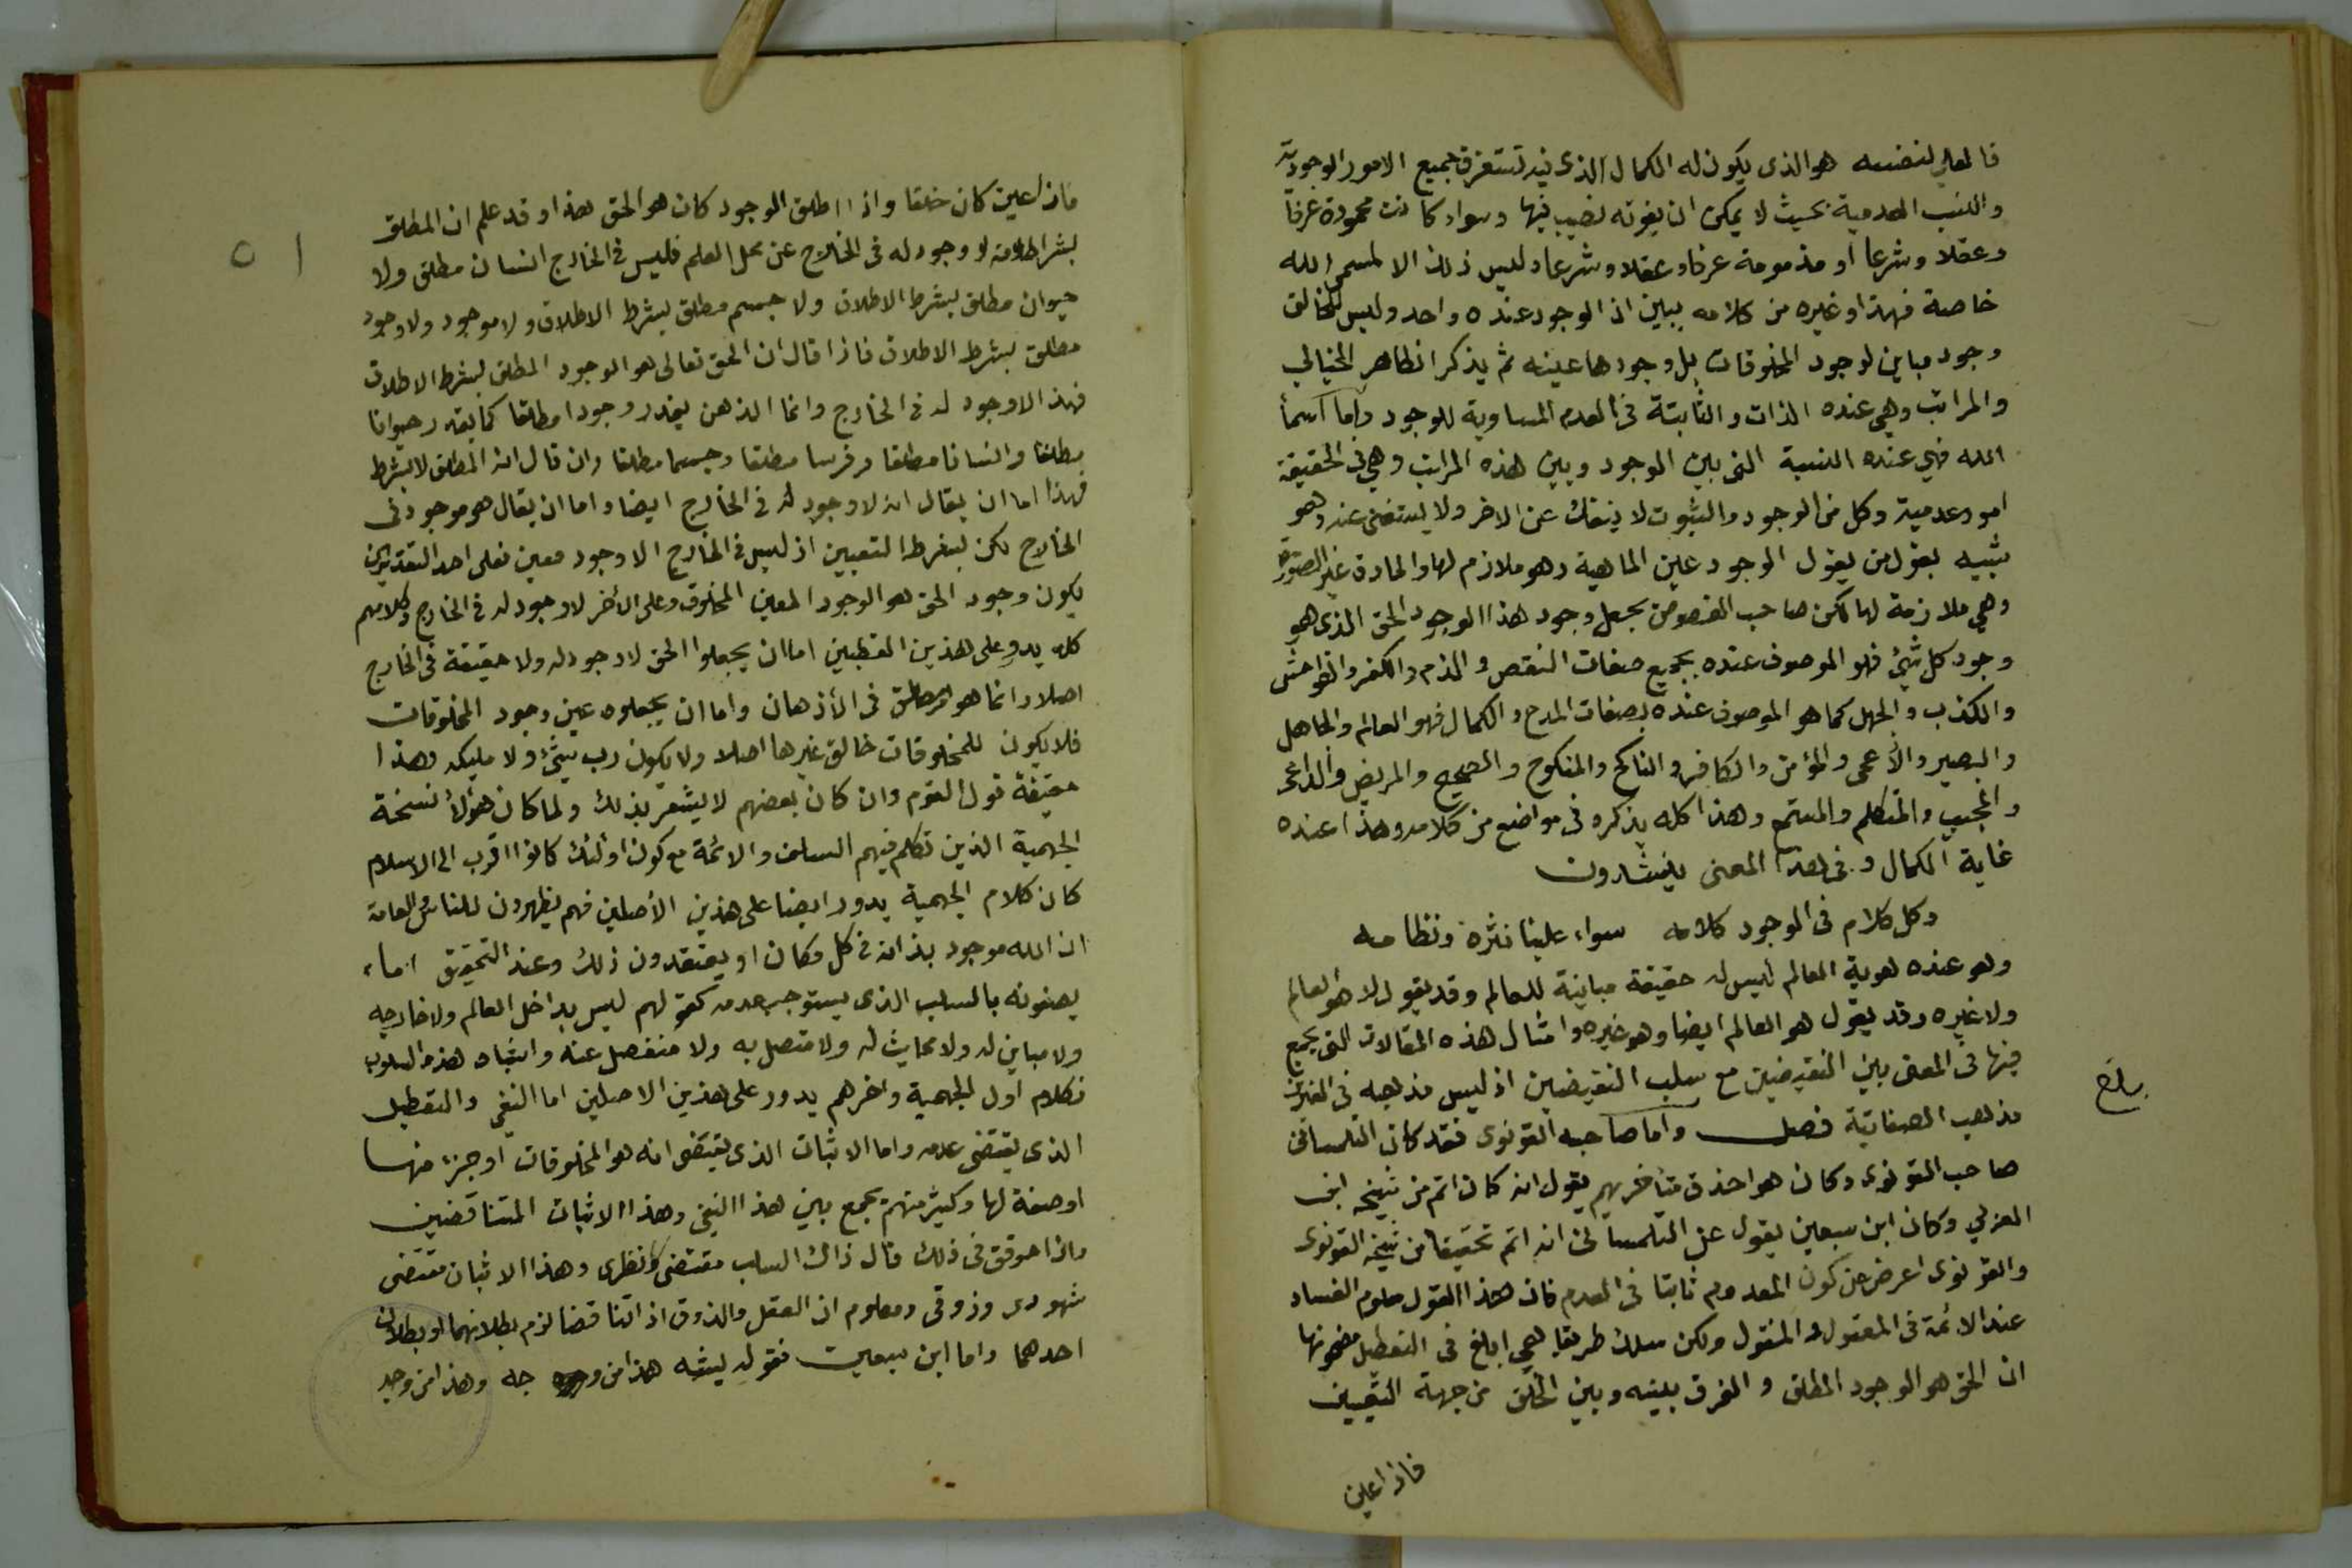 فالعلي لنفسه هو الذى يكون له الكمال الذى فيه تستغرق جميع الامور الوجودية
والنسب العدمية بحيث لا يمكن ان يفوته نصيب فيها وسواء كانت محمودة عرفا
وعقلا وشرعا او مذمومة عرفا وعقلا وشرعا وليس ذلك الا لمسمى الله
خاصة فهذا وغيره من كلامه يبين ان الوجود عنده واحد وليس للخالق
وجود مباين لوجود المخلوقات بل وجودها عينه ثم يذكر الظاهر الخيالي
والمراتب وهي عنده الذات والثابتة فى العدم المساوية للوجود واما اسمأ
الله فهي عنده النسبة التى بين الوجود وبين هذه المراتب وهي فى الحقيقة
امور عدمية وكل من الوجود والثبوت لا ينفك عن الاخر ولا يستغنى عنه وهو
شبيه بقول من يقول الوجود عين الماهية وهو ملازم لها والمادة غير الصورة
وهي ملازمة لها لكن صاحب الفصوص يجعل وجود هذا الوجود الحق الذى هو
وجود كل شيئ فهو الموصوف عنده بجميع صفات النقص والذم والكفر والفواحش
والكذب والجهل كما هو الموصوف عنده بصفات المدح والكمال فهو العالم والجاهل
والبصير والأعمى والمؤمن والكافر والناكح والمنكوح والصحيح والمريض والداعى
والمجيب والمتكلم والمستمع وهذا كله يذكره فى مواضع من كلامه وهذا عنده
غاية الكمال وفى هذا المعنى ينشدون
وكل كلام فى الوجود كلامه سواء علينا نثره ونظامه
وهو عنده هوية العالم ليس له حقيقة مباينة للعالم وقد يقول لا هو العالم
ولا غيره وقد يقول هو العالم ايضا وهو غيره وامثال هذه المقالات التى يجمع
فيها فى المعنى بين النقيضين مع سلب النقيضين اذ ليس مذهبه فى
مذهب الصفاتية فصل واما صاحبه القونوى فقد كان التلمسانى
صاحب القونوى وكان هو احذق متأخريهم يقول انه كان اتم من شيخه ابن
العربي وكان ابن سبعين يقول عن التلمسانى انه اتم تحقيقا من شيخه القونوى
والقونوى اعرض عن كون المعدوم ثابتا فى العدم فان هذا القول معلوم الفساد
عند الائمة فى المعقول والمنقول ولكن سلك طريقا هي ابلغ فى التعطيل مضمونها
ان الحق هو الوجود المطلق والفرق بينه وبين الخلق من جهة التعيين
فاذا عين
بلغ
٥١
فاذا عين كان خلقا واذا اطلق الوجود كان هو الحق هذا وقد علم ان المطلق
بشرط اطلاقه لا وجود له فى الخارج عن محل العلم فليس فى الخارج انسان مطلق ولا
حيوان مطلق بشرط الاطلاق ولا جسم مطلق بشرط الاطلاق ولا موجود ولا وجود
مطلق بشرط الاطلاق فاذا قال ان الحق تعالى هو الوجود المطلق بشرط الاطلاق
فهذا لا وجود له فى الخارج وانما الذهن يقدر وجودا مطلقا كما يقدر حيوانا
مطلقا وانسانا مطلقا وفرسا مطلقا وجسما مطلقا وان قال انه المطلق لا بشرط
فهذا اما ان يقال انه لا وجود له فى الخارج ايضا واما ان يقال هو موجود فى
الخارج لكن بشرط التعيين اذ ليس فى الخارج الا وجود معين فعلى احد التقديرين
يكون وجود الحق هو الوجود المعين المخلوق وعلى الأخر لا وجود له فى الخارج وكلامهم
كله يدور على هذين القطبين اما ان يجعلوا الحق لا وجود له ولا حقيقة فى الخارج
اصلا وانما هو مطلق فى الأذهان واما ان يجعلوه عين وجود المخلوقات
فلا يكون للمخلوقات خالق غيرها اصلا ولا يكون رب شيئ ولا مليكه وهذا
حقيقة قول القوم وان كان بعضهم لا يشعر بذلك ولما كان هؤلأ نسخة
الجهمية الذين تكلم فيهم السلف والائمة مع كون اولئك كانوا اقرب الى الاسلام
كان كلام الجهمية يدور ايضا على هذين الأصلين فهم يظهرون للناس والعامة
ان الله موجود بذاته فى كل مكان او يعتقدون ذلك وعند التحقيق اما
يصفونه بالسلب الذى يستوجب عدمه كقولهم ليس بداخل العالم ولا خارجه
ولا مباين له ولا محايث له ولا متصل به ولا منفصل عنه واشباه هذه السلوب
فكلام اول الجهمية واخرهم يدور على هذين الاصلين اما النفي والتعطيل
الذى يقتضى عدمه واما الاثبات الذى يقتضى انه هو المخلوقات او جزء منها
او صفة لها وكثير منهم يجمع بين هذا النفي وهذا الاثبات المتناقضين
واذا حوقق فى ذلك قال ذاك السلب مقتضى نظرى وهذا الاثبات مقتضى
شهودى وذوقى ومعلوم ان العقل والذوق اذا تناقضا لزم بطلانهما او بطلان
احدهما واما ابن سبعين فقوله يشبه هذا من وجه وهذا من وجه